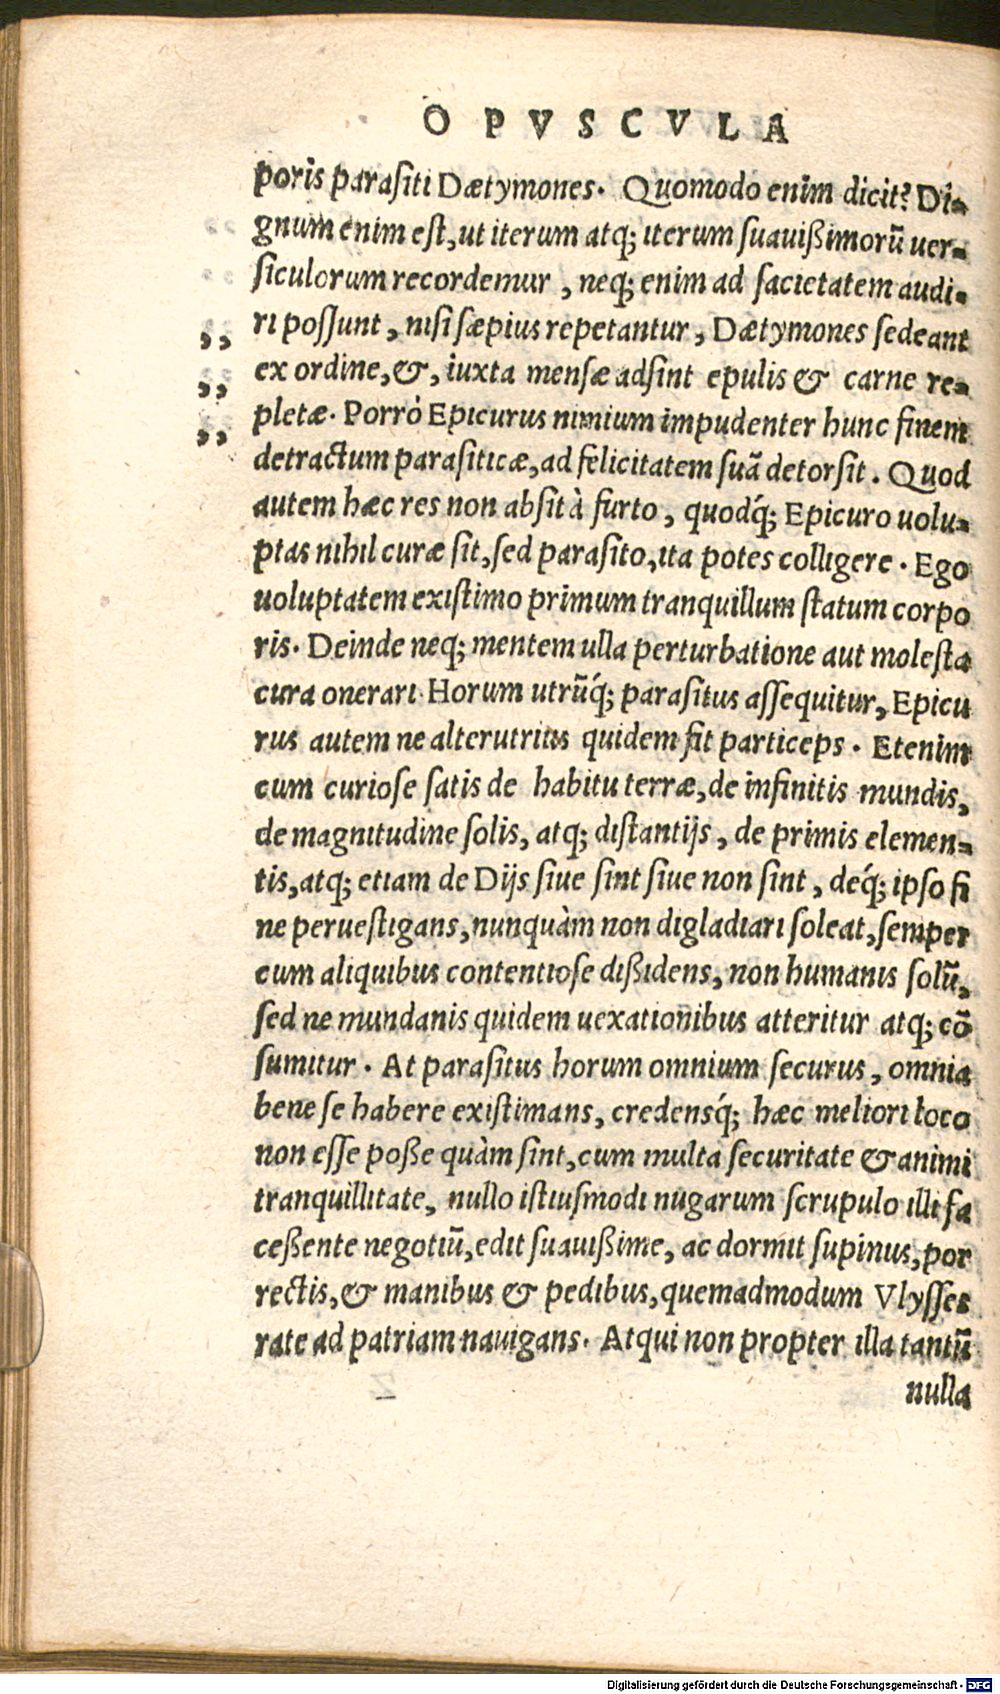 OPVSCVLA
poris parasiti Dætymones. Quomodo enim dicit? Di-
gnum enim est, ut iterum atq; iterum suauißimorũ uer-
siculorum recordemur, neq; enim ad sacietatem audi-
ri possunt, nisi sæpius repetantur, Dætymones sedeant
ex ordine, &, iuxta mensæ adsint epulis & carne re-
pletæ. Porrò Epicurus nimium impudenter hunc finem
detractum parasiticæ, ad felicitatem suã detorsit. Quod
autem hæc res non absit à furto, quodq́; Epicuro uolu-
ptas nihil curæ sit, sed parasito, ita potes colligere. Ego
uoluptatem existimo primum tranquillum statum corpo
ris. Deinde neq; mentem ulla perturbatione aut molesta
cura onerari Horum utrũq́; parasitus assequitur, Epicu
rus autem ne alterutrius quidem fit particeps. Etenim
cum curiose satis de habitu terræ, de infinitis mundis,
de magnitudine solis, atq; distantijs, de primis elemen-
tis, atq; etiam de Dijs siue sint siue non sint, deq́; ipso fi
ne peruestigans, nunquàm non digladiari soleat, semper
cum aliquibus contentiose dißidens, non humanis solũ,
sed ne mundanis quidem uexationibus atteritur atq; cõ
sumitur. At parasitus horum omnium securus, omnia
bene se habere existimans, credensq́; hæc meliori loco
non esse poße quàm sint, cum multa securitate & animi
tranquillitate, nullo istiusmodi nugarum scrupulo illi fa
ceßente negotiũ, edit suauißime, ac dormit supinus, por
rectis, & manibus & pedibus, quemadmodum Vlysses
rate ad patriam nauigans. Atqui non propter illa tantũ
nulla
Digitalisierung gefördert durch die Deutsche Forschungsgemeinschaft - DFG